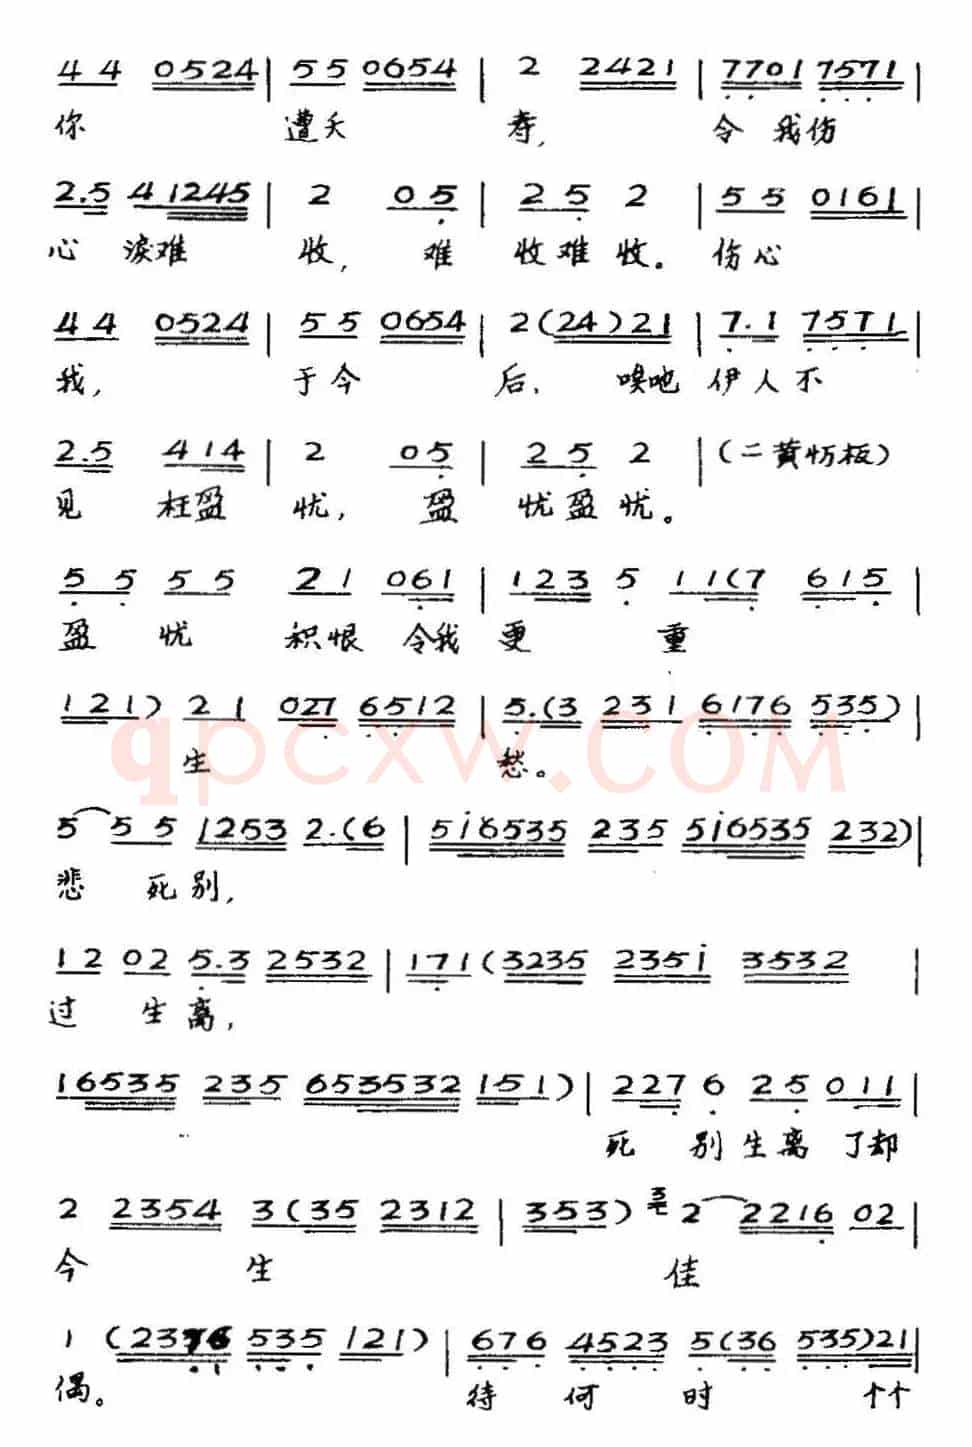 4 4 0524 | 5 5 0654 | 2 2421 | 7701 7571 |
你 遭夭 寿, 令我伤
2.5 4 1245 | 2 05 | 2 5 2 | 5 5 0161
心 淚难 收, 难 收难收。 伤心
4 4 0524 | 5 5 0654 | 2(24)21 | 7.1 7571
我, 于今 后, 嗅吔 伊人不
2.5 414 | 2 05 | 2 5 2 | (二黄切板)
见 枉盈 忧, 盈 忧盈忧。
5 5 5 5 2 1 061 | 123 5 11(7 615 |
盈 忧 积恨 令我 更 重
121) 2 1 027 6512 | 5.(3 231 6176 535) |
qpcxw.COM
生 愁。
5 5 5 1253 2.(6 | 5i6535 235 5i6535 232) |
悲 死别,
12 02 5.3 2532 | 171(3235 235i 3532 |
过 生离,
16535 235 653532 151) | 227 6 25 011 |
死 别生离 了却
2 2354 3(35 2312 | 353) 3 2 2216 02 |
今 生 佳
1 (2376 535 121) | 676 4523 5(36 535)21 |
偶。 待 何 时 个个